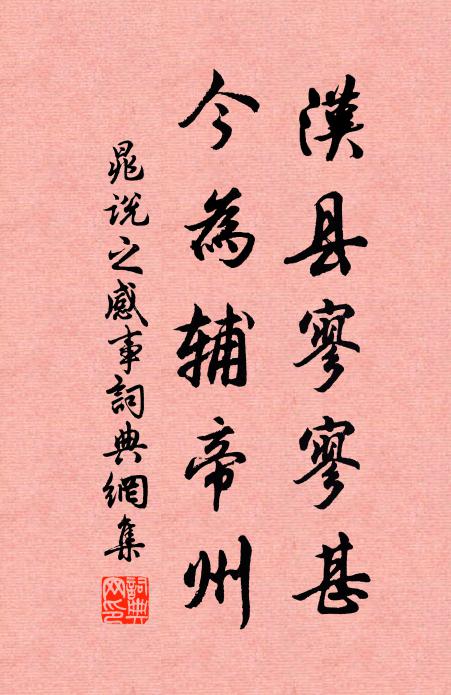 漢县寥寥甚
今為辅帝州
晁说之感事詞典網集
詞典網印